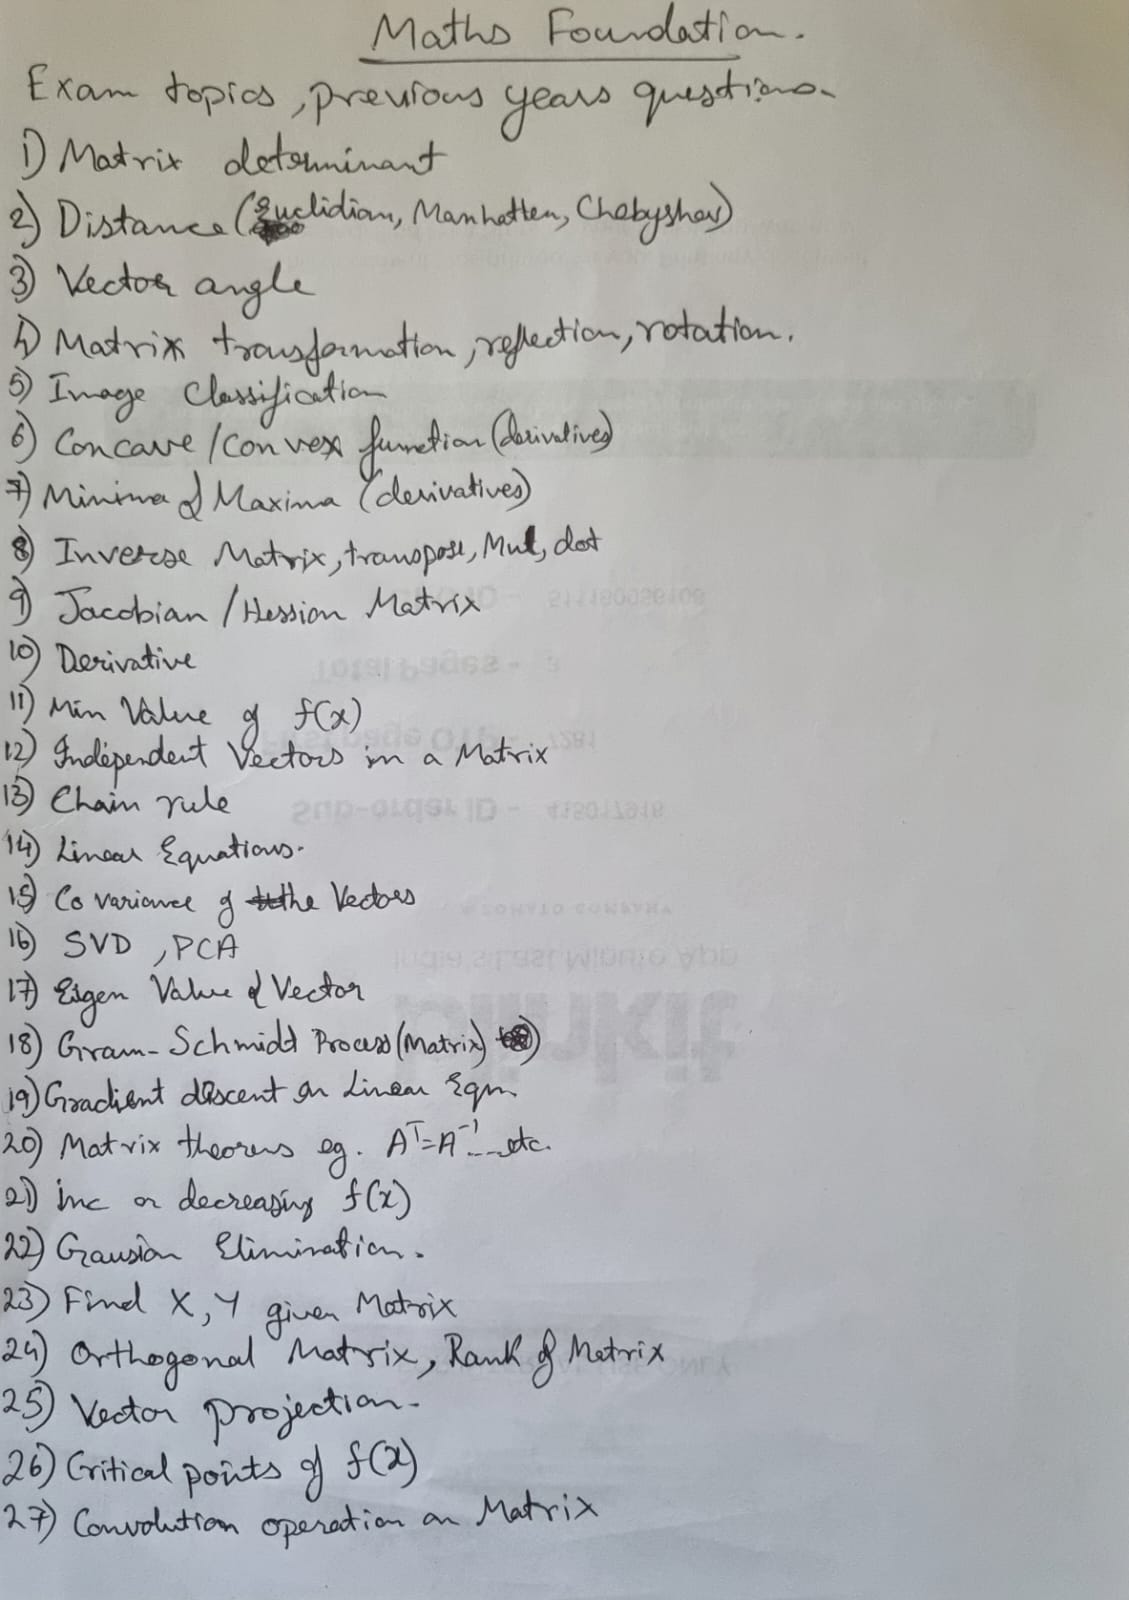 Maths Foundation.
Exam topics, previous years questions.
1) Matrix determinant
2) Distance (Euclidian, Manhatten, Chebyshev)
3) Vector angle
4) Matrix transformation, reflection, rotation.
5) Image Classification
6) Concave / Convex function (derivatives)
7) Minima & Maxima (derivatives)
8) Inverse Matrix, transpose, Mul, dot
9) Jacobian / Hession Matrix
10) Derivative
11) Min Value of f(x)
12) Independent Vectors in a Matrix
13) Chain rule
14) Linear Equations.
15) Co variance of the Vectors
16) SVD, PCA
17) Eigen Value & Vector
18) Gram-Schmidt Process (Matrix)
19) Gradient descent on Linear Eqn.
20) Matrix theorems eg. Aᵀ=A⁻¹... etc.
21) inc or decreasing f(x)
22) Gausian Elimination.
23) Find X, Y given Matrix
24) Orthogonal Matrix, Rank of Matrix
25) Vector projection.
26) Critical points of f(x)
27) Convolution operation on Matrix